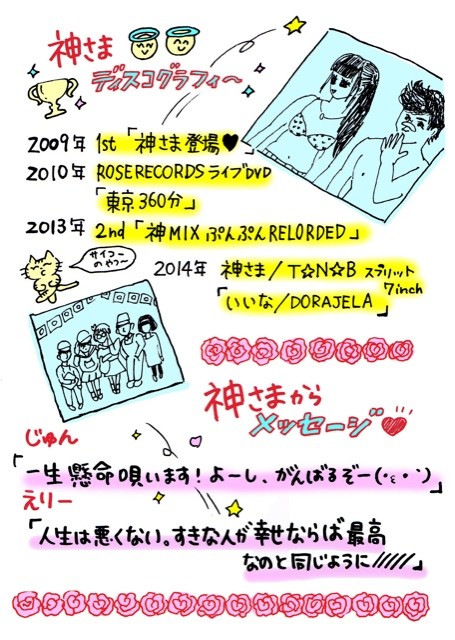 神さま
ディスコグラフィ〜
2009年 1st「神さま登場♥」
2010年 ROSE RECORDS ライブDVD
「東京360分」
2013年 2nd「神MIX ぷんぷんRELORDED」
サイコーのやつ〜
2014年 神さま/T☆N☆B スプリット7inch
「いいな/DORAJELA」
神さまから
メッセージ♥
じゅん
「一生懸命唄います!よーし、がんばるぞー(・ε・`)」
えりー
「人生は悪くない。すきな人が幸せならば最高
なのと同じように/////」